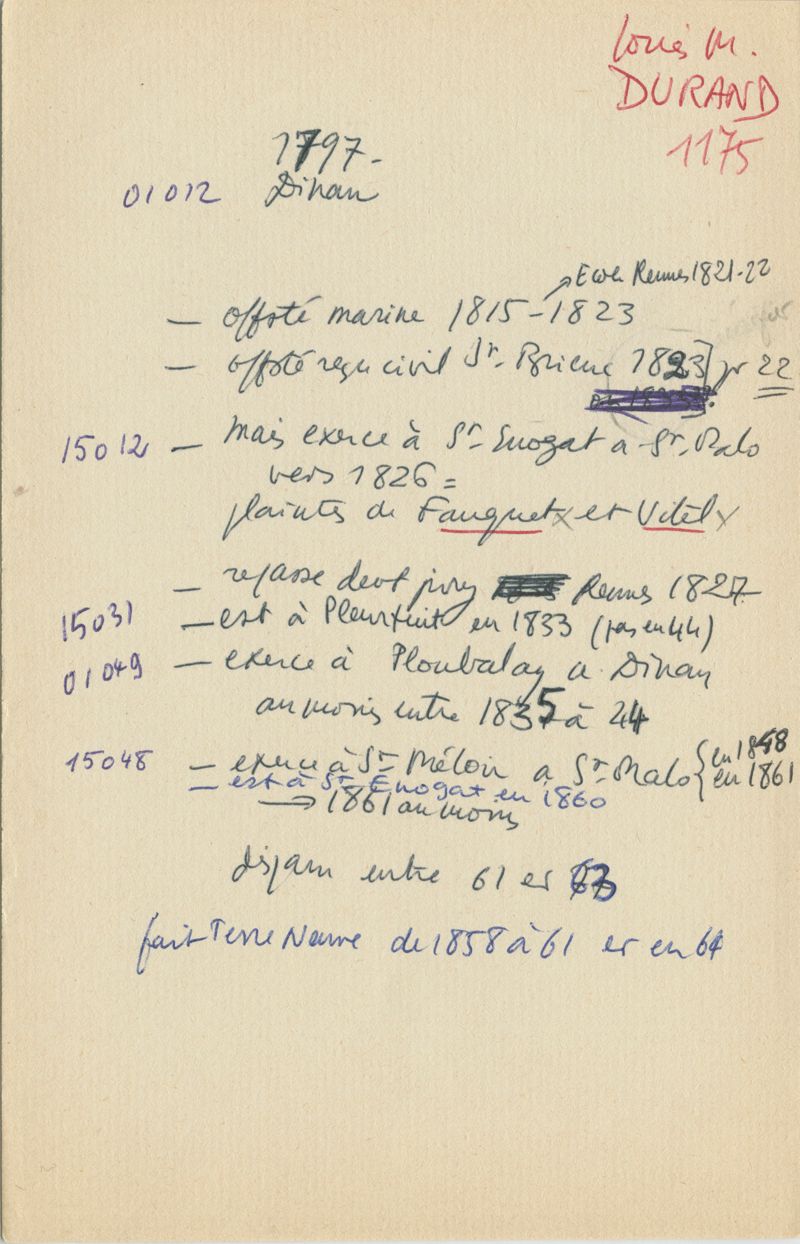 Louis M.
DURAND
1175
1797-
01012 Dinan
↗ Ecole Rennes 1821-22
— offsté marine 1815-1823
— offsté reçu civil St-Brieuc 1823] pr 22
15012 — Mais exerce à St-Enogat a St-Malo
vers 1826 =
plaintes de Fauquet x et Vitel x
— repasse devt jury Rennes 1827
15031 — est à Pleurtuit en 1833 (pas en 44)
01049 — exerce à Ploubalay a Dinan
au moins entre 1835 à 44
15048 — exerce à St-Méloir a St-Malo { en 1848
en 1861
— est à St-Enogat en 1860
→ 1861 au moins
disparu entre 61 et 63
fait Terre Neuve de 1858 à 61 et en 64